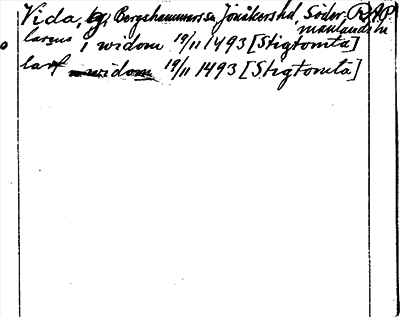 Vida, by, Bergshammars sn Jönåkers hd, Söder- RAP
manlands län
larens i widom 19/11 1493 [Stigtomta]
larf widom 19/11 1493 [Stigtomta]